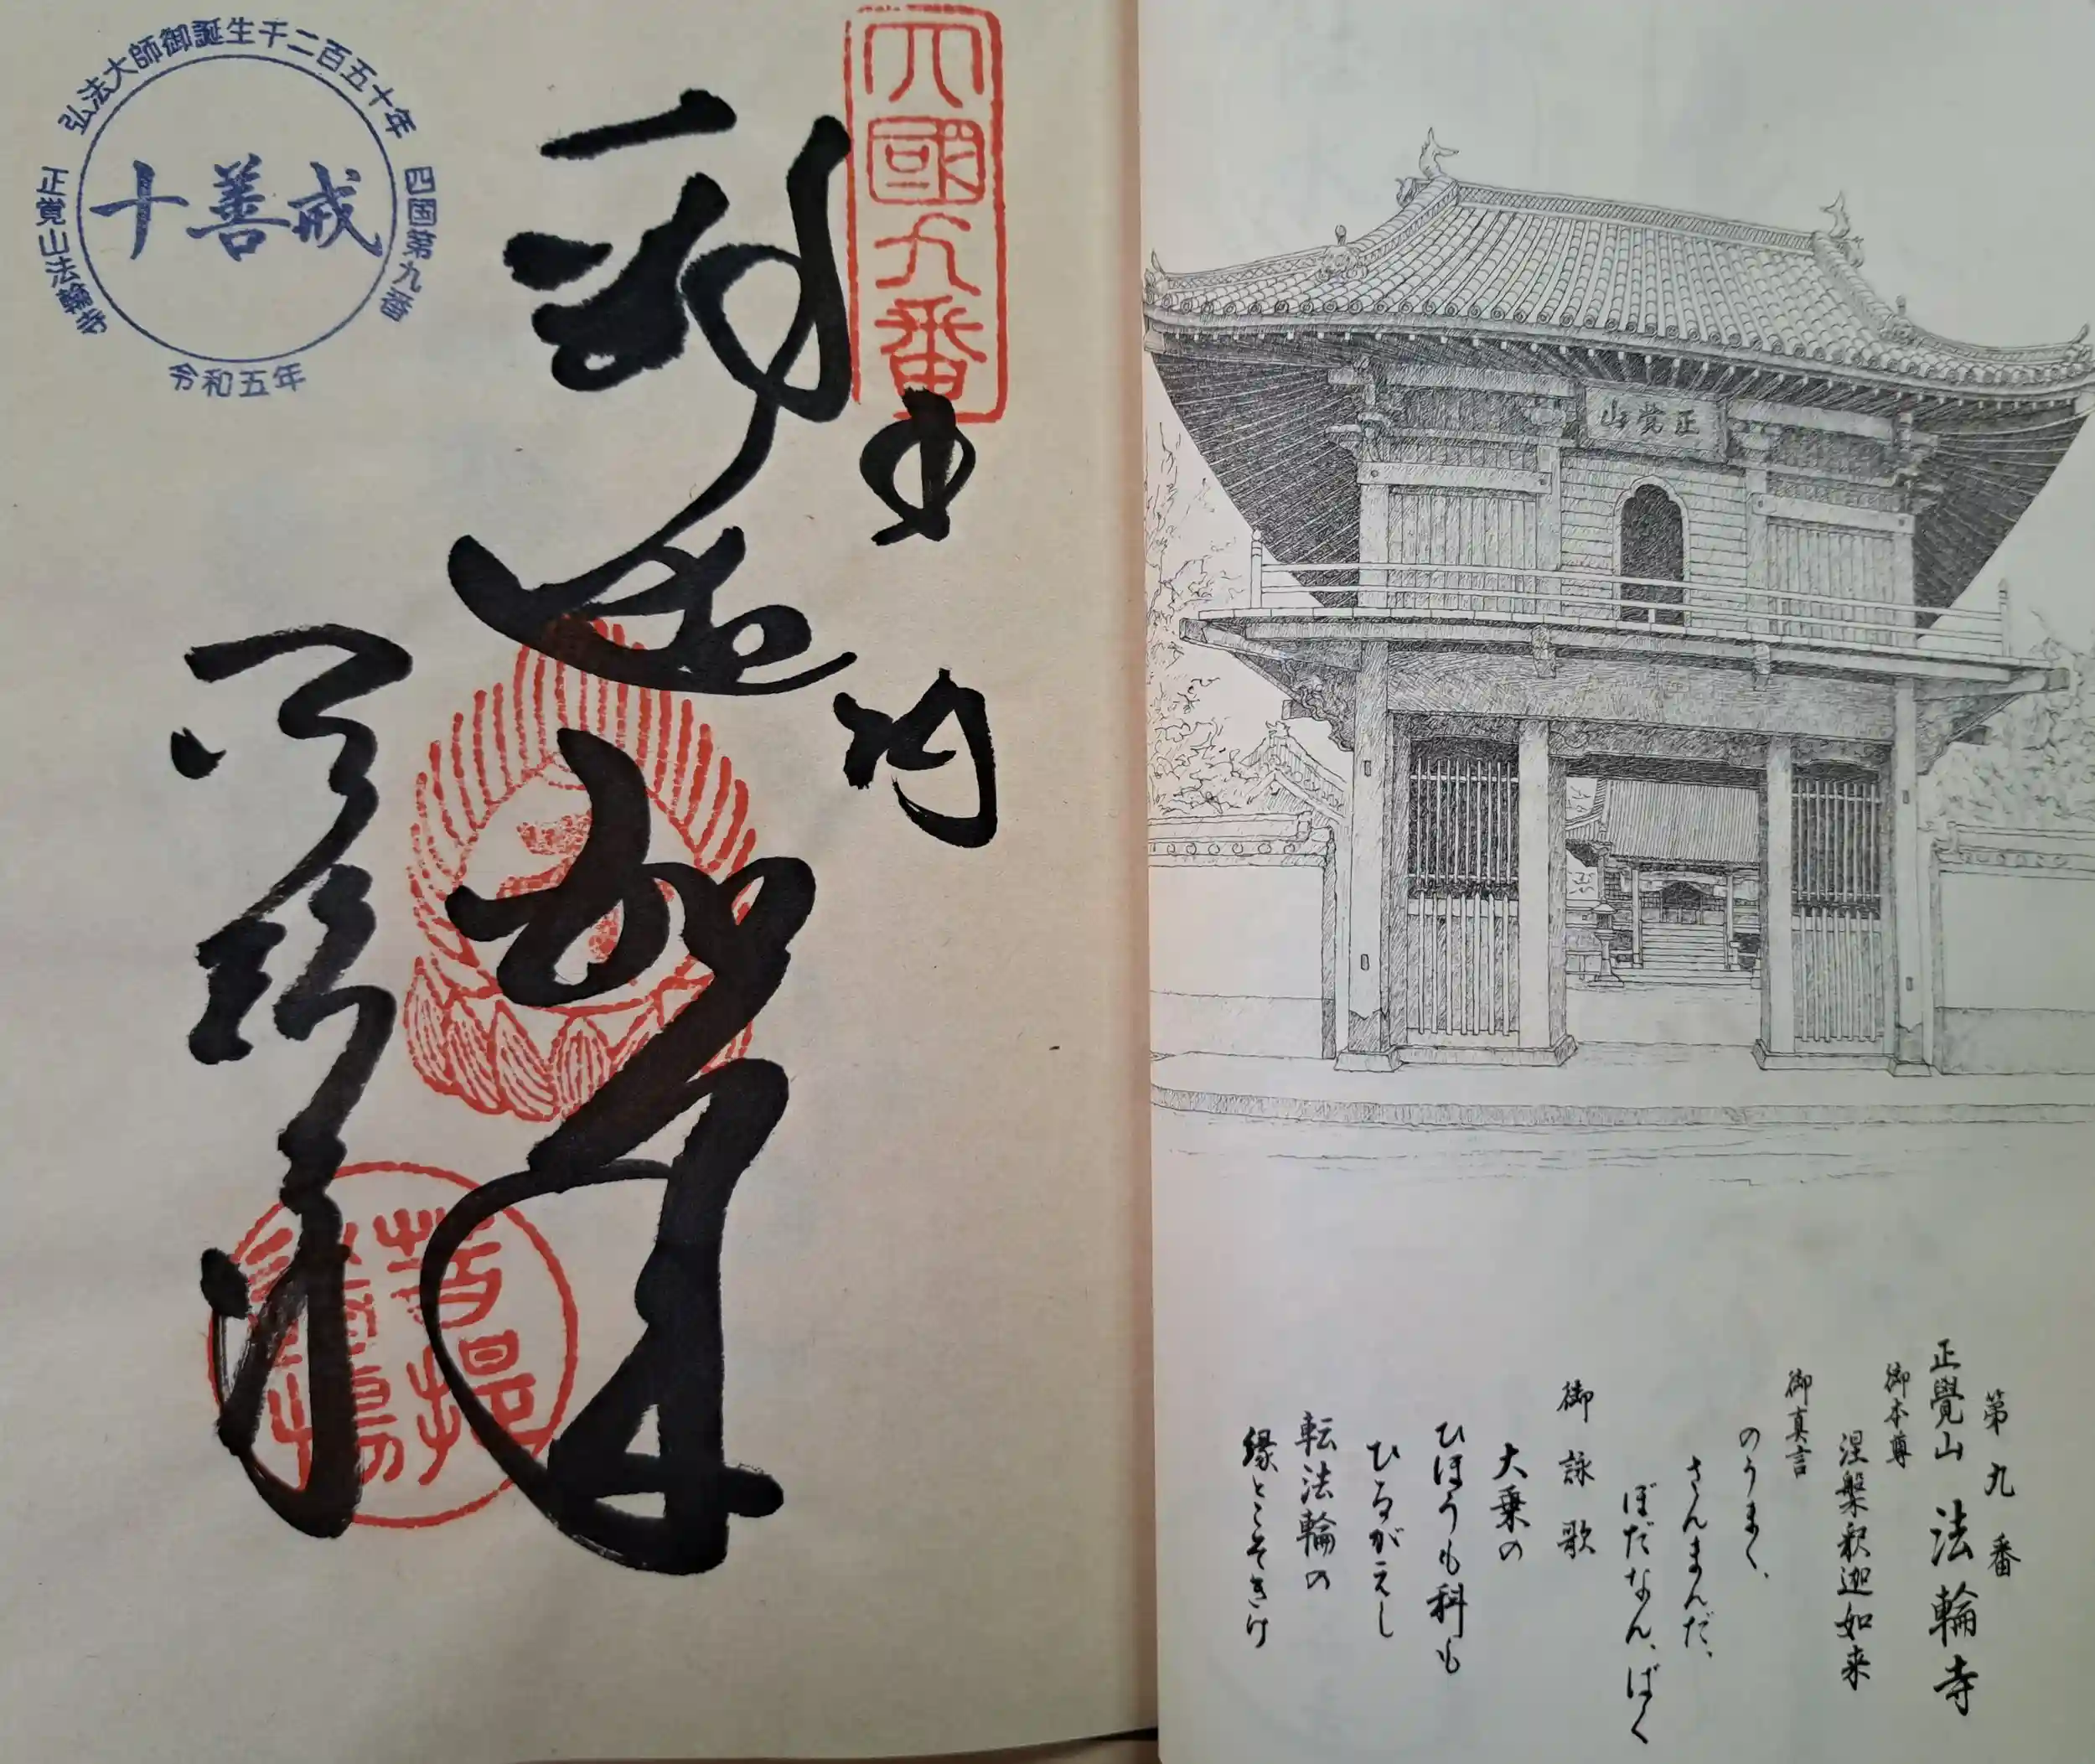 正覚山
第九番
正覺山 法輪寺
御本尊
涅槃釈迦如来
御真言
のうまく、
さんまんだ、
ぼだなん、ばく
御詠歌
大乗の
ひほうも科も
ひるがえし
転法輪の
縁とこそきけ
四國九番
奉納
弘法大師御誕生千二百五十年
四国第九番
正覚山法輪寺
十善戒
令和五年